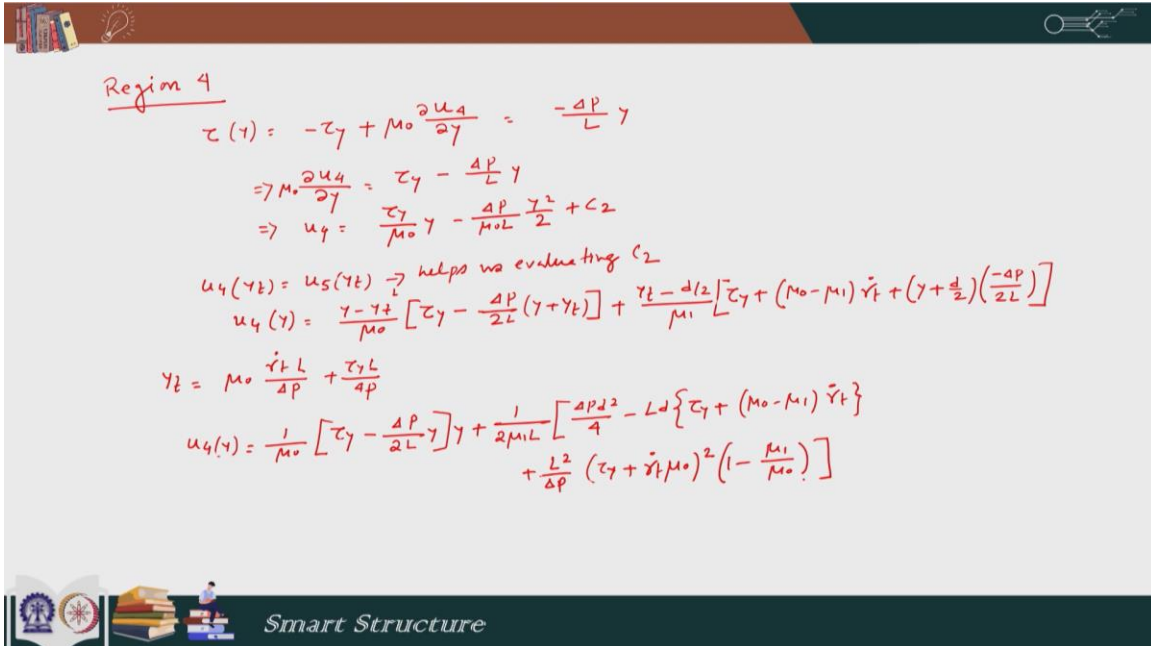 Region 4
τ(y) = -τy + μ0 ∂u4/∂y = -ΔP/L y
=> μ0 ∂u4/∂y = τy - ΔP/L y
=> u4 = τy/μ0 y - ΔP/μ0L y²/2 + C2
u4(yt) = u5(yt) → helps us evaluating C2
u4(y) = y-yt/μ0 [τy - ΔP/2L (y+yt)] + yt-d/2/μ1 [τy + (μ0-μ1) γ̇t + (y+d/2)(-ΔP/2L)]
yt = μ0 γ̇t L/ΔP + τyL/ΔP
u4(y) = 1/μ0 [τy - ΔP/2L y] y + 1/2μ1L [ΔPd²/4 - Ld{τy + (μ0-μ1) γ̇t}
+ L²/ΔP (τy + γ̇t μ0)² (1 - μ1/μ0)]
Smart Structure